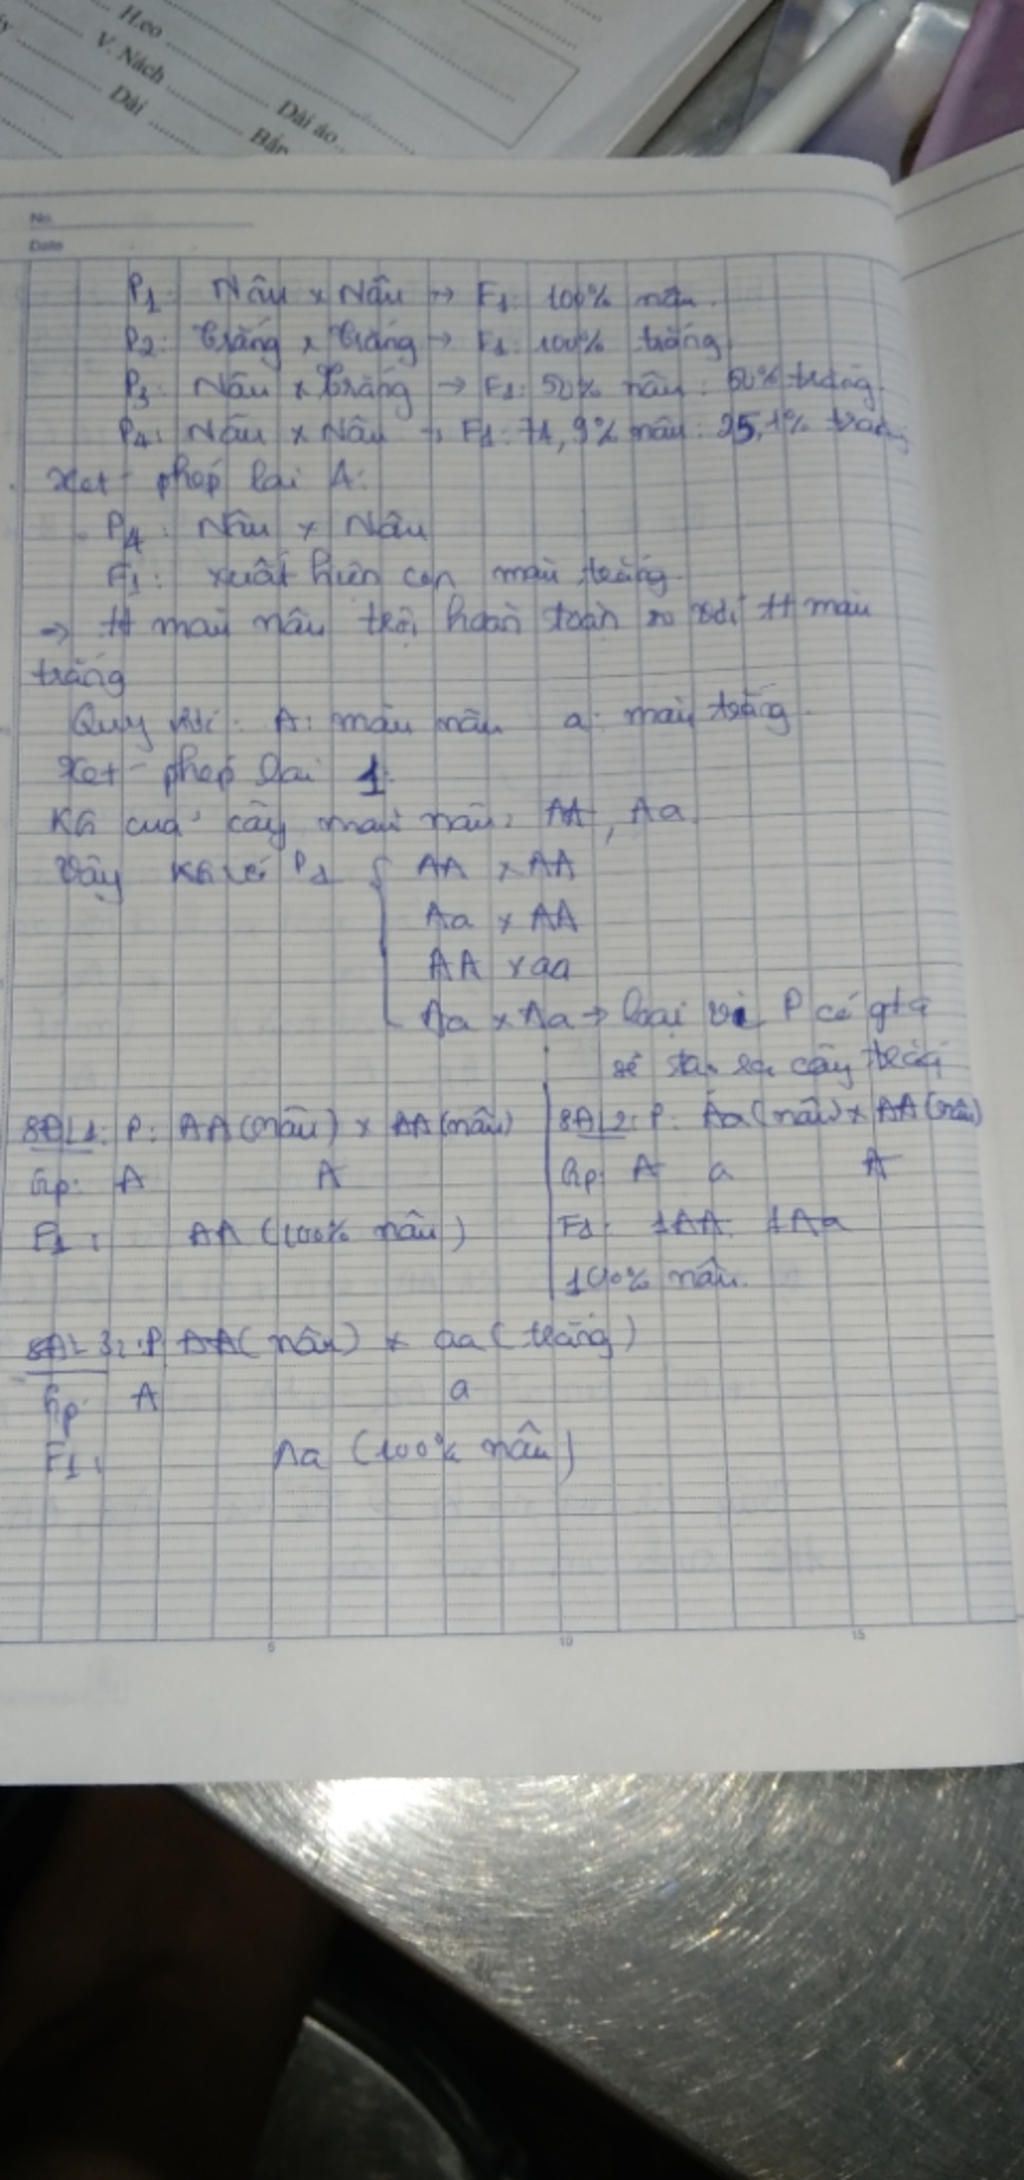 H.eo
V. Nách
Dài
Dài áo
Bắp
No.
Date
P1: Nâu x Nâu → F1: 100% nâu.
P2: trắng x trắng → F1: 100% trắng
P3: Nâu x trắng → F1: 50% nâu: 50% trắng.
P4: Nâu x Nâu → F1: 74,9% nâu: 25,1% trắng
Xét phép lai 4:
P4: Nâu x Nâu
F1: xuất hiện con màu trắng.
=> tt màu nâu trội hoàn toàn so với tt màu
trắng
Quy ước: A: màu nâu a: màu trắng.
Xét phép lai 1:
KG của cây màu nâu: AA, Aa
Vậy KG có P1 { AA x AA
Aa x AA
AA x aa
Aa x Aa → loại vì P có gt a
sẽ sinh ra cây trắng
SĐL1: P: AA (nâu) x AA (nâu)
Gp: A A
F1: AA (100% nâu)
SĐL2: P: Aa (nâu) x AA (nâu)
Gp: A a A
F1: 1AA 1Aa
100% nâu.
SĐL 3: P AA (nâu) x aa (trắng)
Gp: A a
F1: Aa (100% nâu)
5 10 15